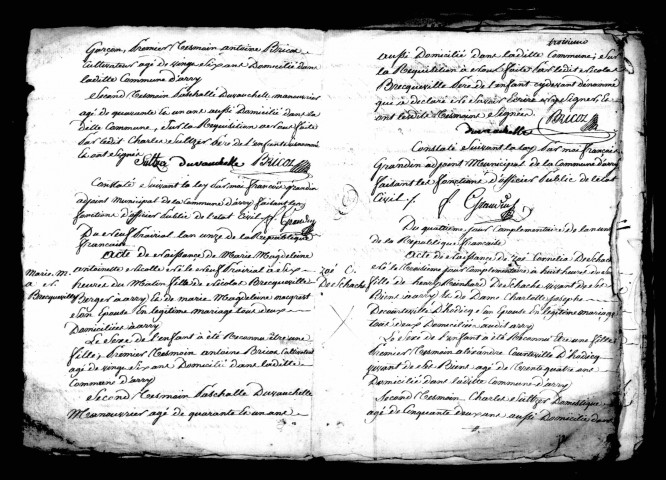 Garçon, Premier Tesmoin antoine Bricot
Cultivateur agé de vingt six ans Domicilié dans
laditte Commun d'arry
Second Tesmoin Paschalle Duvauchelle, manouvrier
agé de quarante le un ans aussi Domicilié dans la
ditte Commune, Sur la Requisition a nous faite
Par ledit Charles Sultzer Pere de l'enfant
et ont Signé
Sultzer Duvauchelle Bricot
Constaté Suivant la loy Par moi François grandin
adjoint Municipal de la Commune d'arry faisant les
fonctions d'officier Public de l'etat Civil f. Grandin
Du neuf Prairial l'an onze de la Republique
francaise
Marie. M.
a. N.
Brecqueville
Acte de Naissance de Marie Magdeleine
antoinette Nicolle née le neuf Prairial a six
heures du Matin fille de Nicolas Brecqueville
Berger a arry et de marie Magdeleine
Son Epouse En legitime mariage tous deux
Domiciliés a arry
Le Sexe de l'enfant a été Reconnu être une
fille, Premier Tesmoin antoine Bricot Cultivateur
agé de vingt six ans Domicilié dans laditte
Commune d'arry
Second Tesmoin Paschalle Duvauchelle
Manouvrier agé de quarante le un ans
troisieme
aussi Domicilié dans laditte Commune; Sur
la Requisition a nous faite Par ledit Nicolas
Brecqueville Pere de l'enfant cydevant denommé
qui a declaré ne Savoir Ecrire ny Signer, le
ont lesdits Tesmoins Signé Bricot
Duvauchelle
Constaté Suivant la loy Par moi François
Grandin adjoint Municipal de la Commune d'arry
faisant les fonctions d'officier Public de l'etat
Civil f. Grandin
Du quatrieme jour Complementaire de l'an onze
de la Republique francaise
Zoé C.
DeSchache
Acte de Naissance de Zoé Cornelia DeSchache
née le troisieme jour Complementaire a huit heures du
fille de henry Reinhard DeSchache vivant de Ses
Biens a arry et de Dame Charlotte Josephe
Decourteville D'hodicq son Epouse En legitime mariage
tous deux Domiciliés audit arry
Le Sexe de l'enfant a été Reconnu être une fille
Premier Tesmoin alexandre Courteville D'hodicq
vivant de Ses Biens agé de Trente quatre ans
Domicilié dans laditte Commune d'arry
Second Tesmoin, Charles Sultzer Domestique
agé de Cinquante deux ans aussi Domicilié dans